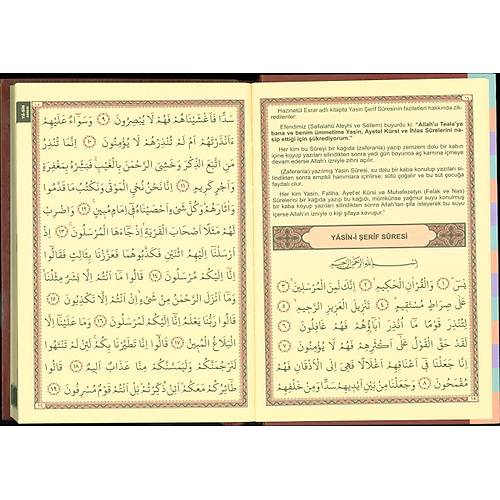 Hazinetül Esrar adlı kitapta Yasin Şerif Sûresinin faziletleri hakkında zikredilenler:
Efendimiz (Sallalahü Aleyhi ve Sellem) buyurdu ki: "Allah'u Teala'ya
bana ve benim ümmetime Yasin, Ayetel Kürsi ve İhlas Sûrelerini na-
sip ettiği için şükrediyorum."
Her kim bu Sûreyi bir kağıda (zaferanla) yazıp zemzem dolu bir kabın
içine koyup yazıları silindikten sonra yedi gün boyunca aç karnına içmeye
devam ederse Allah'ın izniyle zihni açılır.
(Zaferanla) yazılmış Yasin Sûresi, su dolu bir kaba konulup yazıları si-
lindikten sonra emzikli hanımlara içirilirse; sütü çoğalır ve bu süt çocuğa
faydalı olur.
Her kim Yasin, Fatiha, Ayetel Kürsi ve Muhafezetyn (Felak ve Nas)
Sûrelerini bir kağıda yazıp bu kağıdı, mümkünse yağmur suyu konulmuş
bir kaba koyup yazıları silindikten sonra Allah'tan şifa isteyerek bu suyu
içerse Allah'ın izniyle o kişi şifaya kavuşur."
YÂSÎN-İ ŞERİF SÛRESİ
بِسْمِ اللّٰهِ الرَّحْمٰنِ الرَّحِيمِ
يٰسٓ ١ وَالْقُرْاٰنِ الْحَكِيمِ ٢ اِنَّكَ لَمِنَ الْمُرْسَلِينَ ٣
عَلٰى صِرَاطٍ مُسْتَقِيمٍ ٤ تَنْزِيلَ الْعَزِيزِ الرَّحِيمِ ٥
لِتُنْذِرَ قَوْمًا مَٓا اُنْذِرَ اٰبَٓاؤُهُمْ فَهُمْ غَافِلُونَ ٦
لَقَدْ حَقَّ الْقَوْلُ عَلٰٓى اَكْثَرِهِمْ فَهُمْ لَا يُؤْمِنُونَ ٧
اِنَّا جَعَلْنَا فِٓى اَعْنَاقِهِمْ اَغْلَالًا فَهِىَ اِلَى الْاَذْقَانِ فَهُمْ
مُقْمَحُونَ ٨ وَجَعَلْنَا مِنْ بَيْنِ اَيْدِيهِمْ سَدًّا وَمِنْ خَلْفِهِمْ
سَدًّا فَاَغْشَيْنَاهُمْ فَهُمْ لَا يُبْصِرُونَ ٩ وَسَوَٓاءٌ عَلَيْهِمْ
ءَاَنْذَرْتَهُمْ اَمْ لَمْ تُنْذِرْهُمْ لَا يُؤْمِنُونَ ١٠ اِنَّمَا تُنْذِرُ
مَنِ اتَّبَعَ الذِّكْرَ وَخَشِىَ الرَّحْمٰنَ بِالْغَيْبِ فَبَشِّرْهُ بِمَغْفِرَةٍ
وَاَجْرٍ كَرِيمٍ ١١ اِنَّا نَحْنُ نُحْيِ الْمَوْتٰى وَنَكْتُبُ مَا قَدَّمُوا
وَاٰثَارَهُمْ وَكُلَّ شَىْءٍ اَحْصَيْنَاهُ فِٓى اِمَامٍ مُبِينٍ ١٢ وَاضْرِبْ
لَهُمْ مَثَلًا اَصْحَابَ الْقَرْيَةِ اِذْ جَٓاءَهَا الْمُرْسَلُونَ ١٣ اِذْ
اَرْسَلْنَٓا اِلَيْهِمُ اثْنَيْنِ فَكَذَّبُوهُمَا فَعَزَّزْنَا بِثَالِثٍ فَقَالُٓوا
اِنَّٓا اِلَيْكُمْ مُرْسَلُونَ ١٤ قَالُوا مَٓا اَنْتُمْ اِلَّا بَشَرٌ مِثْلُنَا
وَمَٓا اَنْزَلَ الرَّحْمٰنُ مِنْ شَىْءٍ اِنْ اَنْتُمْ اِلَّا تَكْذِبُونَ ١٥
قَالُوا رَبُّنَا يَعْلَمُ اِنَّٓا اِلَيْكُمْ لَمُرْسَلُونَ ١٦ وَمَا عَلَيْنَٓا اِلَّا
الْبَلَاغُ الْمُبِينُ ١٧ قَالُٓوا اِنَّا تَطَيَّرْنَا بِكُمْ لَئِنْ لَمْ تَنْتَهُوا
لَنَرْجُمَنَّكُمْ وَلَيَمَسَّنَّكُمْ مِنَّا عَذَابٌ اَلِيمٌ ١٨ قَالُوا
طَٓائِرُكُمْ مَعَكُمْ اَئِنْ ذُكِّرْتُمْ بَلْ اَنْتُمْ قَوْمٌ مُسْرِفُونَ ١٩